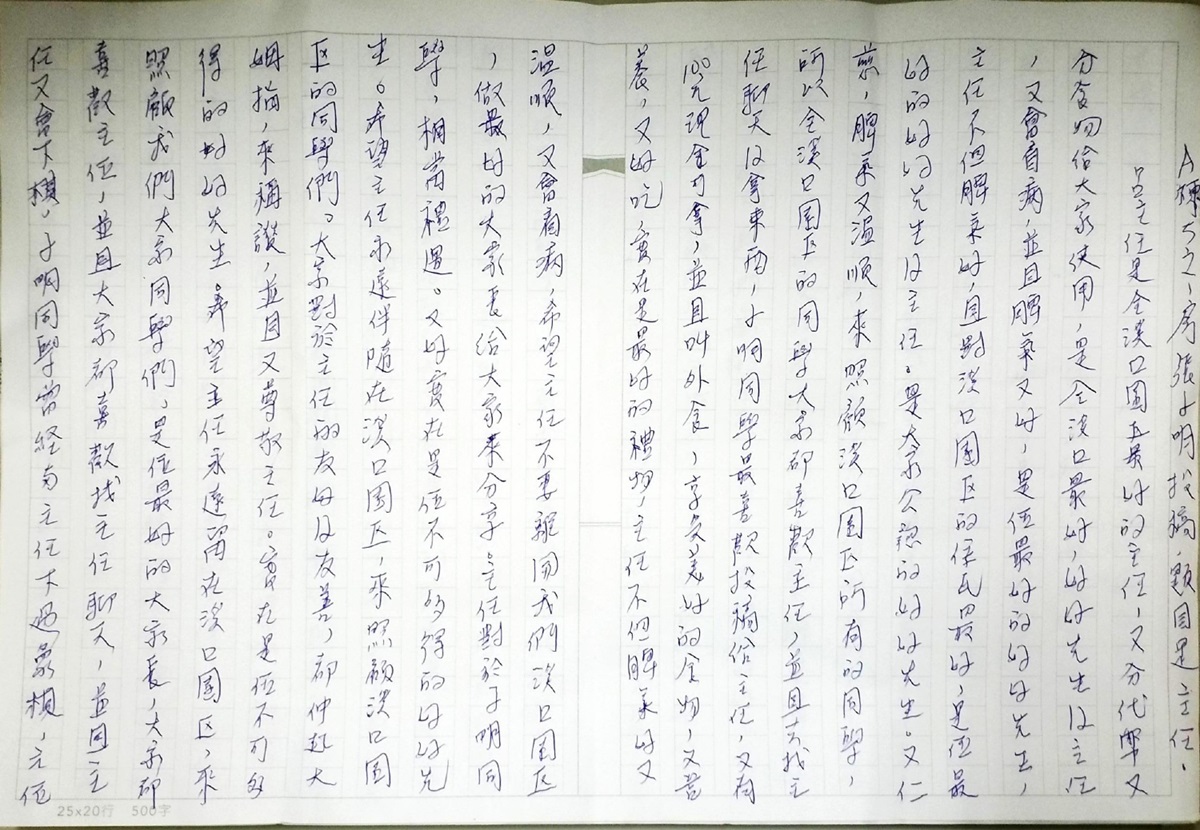 A棟52房張子明投稿,題目是主任.
呂主任是全淡口園區最好的主任,又分代幣又
分食物給大家使用,是全淡口最好,好好先生的主任
,又會看病,並且脾氣又好,是位最好的好好先生,
主任不但脾氣好,且對淡口園區的保民最好,是位最
好的好好先生的主任。是大家公認的好好先生。又仁
慈,脾氣又溫順,來照顧淡口園區所有的同學,
所以全淡口園區的同學大家都喜歡主任,並且去找主
任聊天及拿東西,子明同學最喜歡投稿給主任,又有
100元現金可拿,並且叫外食,享受美好的食物,又營
養,又好吃,實在是最好的禮物,主任不但脾氣好又
溫順,又會看病,希望主任不要離開我們淡口園區
,做最好的大家長給大家來分享。主任對於子明同
學,相當禮遇。又好實在是位不可多得的好好先
生。希望主任永遠伴隨在淡口園區,來照顧淡口園
區的同學們。大家對於主任的友好及友善,都伸起大
姆指,來稱讚,並且又尊敬主任。實在是位不可多
得的好好先生。希望主任永遠留在淡口園區,來
照顧我們大家同學們,是位最好的大家長,大家都
喜歡主任,並且大家都喜歡找主任聊天,並同主
任又會下棋,子明同學曾經與主任下過象棋,主任
25x20行 500字